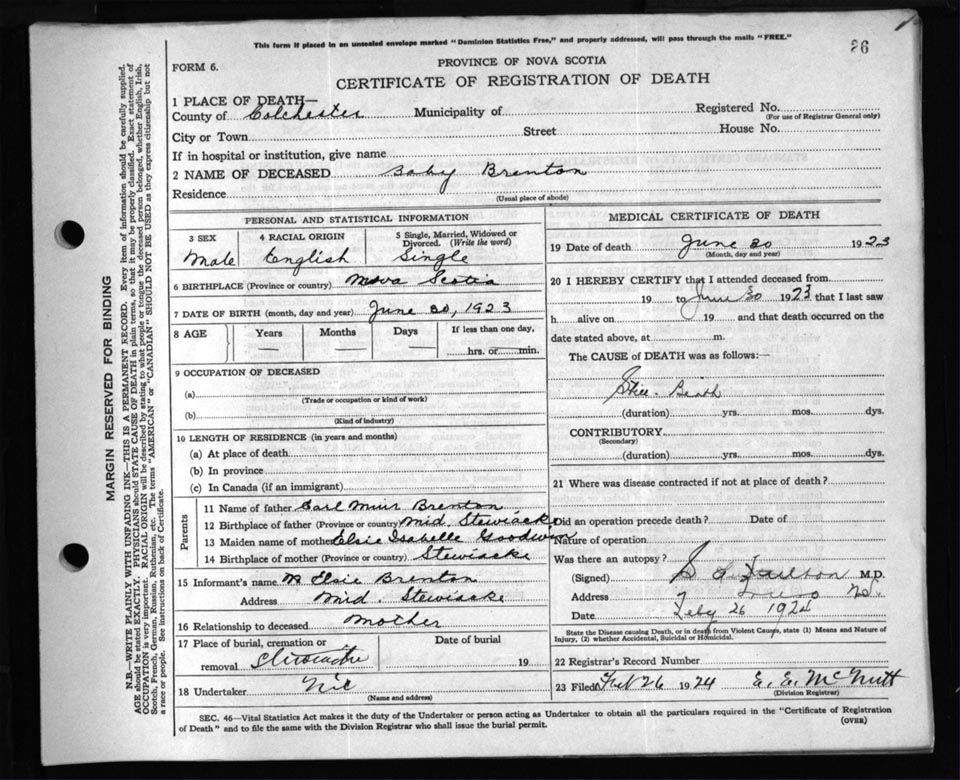 This form if placed in an unsealed envelope marked "Dominion Statistics Free," and properly addressed, will pass through the mails "FREE."
86
FORM 6.
PROVINCE OF NOVA SCOTIA
CERTIFICATE OF REGISTRATION OF DEATH
1 PLACE OF DEATH—
County of Colchester Municipality of Registered No.
(For use of Registrar General only)
City or Town Street House No.
If in hospital or institution, give name
2 NAME OF DECEASED Baby Brenton
Residence
(Usual place of abode)
PERSONAL AND STATISTICAL INFORMATION
3 SEX 4 RACIAL ORIGIN 5 Single, Married, Widowed or Divorced. (Write the word)
Male English Single
6 BIRTHPLACE (Province or country) Nova Scotia
7 DATE OF BIRTH (month, day and year) June 30, 1923
8 AGE Years Months Days If less than one day,
— — — hrs. or min.
9 OCCUPATION OF DECEASED
(a)
(Trade or occupation or kind of work)
(b)
(Kind of industry)
10 LENGTH OF RESIDENCE (in years and months)
(a) At place of death
(b) In province
(c) In Canada (if an immigrant)
Parents
11 Name of father Earl Muir Brenton
12 Birthplace of father (Province or country) Mid. Stewiacke
13 Maiden name of mother Elsie Isabelle Goodwin
14 Birthplace of mother (Province or country) Stewiacke
15 Informant's name Elsie Brenton
Address Mid. Stewiacke
16 Relationship to deceased Mother
17 Place of burial, cremation or Date of burial
removal Stewiacke 19
18 Undertaker Nil
(Name and address)
MEDICAL CERTIFICATE OF DEATH
19 Date of death June 30 1923
(Month, day and year)
20 I HEREBY CERTIFY that I attended deceased from
19 to June 30 1923 that I last saw
h alive on 19 and that death occurred on the
date stated above, at m.
The CAUSE of DEATH was as follows:—
Still Birth
(duration) yrs. mos. dys.
CONTRIBUTORY
(Secondary)
(duration) yrs. mos. dys.
21 Where was disease contracted if not at place of death?
Did an operation precede death? Date of
Nature of operation
Was there an autopsy?
(Signed) M.D.
Address Truro N.S.
Date Feby 26 1924
State the Disease causing Death, or in death from Violent Causes, state (1) Means and Nature of
Injury, (2) whether Accidental, Suicidal or Homicidal.
22 Registrar's Record Number
23 Filed Feb 26 1924 E. E. McNutt
(Division Registrar)
SEC. 46—Vital Statistics Act makes it the duty of the Undertaker or person acting as Undertaker to obtain all the particulars required in the "Certificate of Registration
of Death" and to file the same with the Division Registrar who shall issue the burial permit.
(OVER)
MARGIN RESERVED FOR BINDING
N.B.—WRITE PLAINLY WITH UNFADING INK—THIS IS A PERMANENT RECORD. Every item of information should be carefully supplied.
AGE should be stated EXACTLY. PHYSICIANS should STATE CAUSE OF DEATH in plain terms, so that it may be properly classified. Exact statement of
OCCUPATION is very important. RACIAL ORIGIN will be described by stating to what people or tongue the deceased person belonged, whether English, Irish,
Scotch, French, German, Russian, Ruthenian, etc. The terms "AMERICAN" or "CANADIAN" SHOULD NOT BE USED as they express citizenship but not
a race or people. See instructions on back of Certificate.